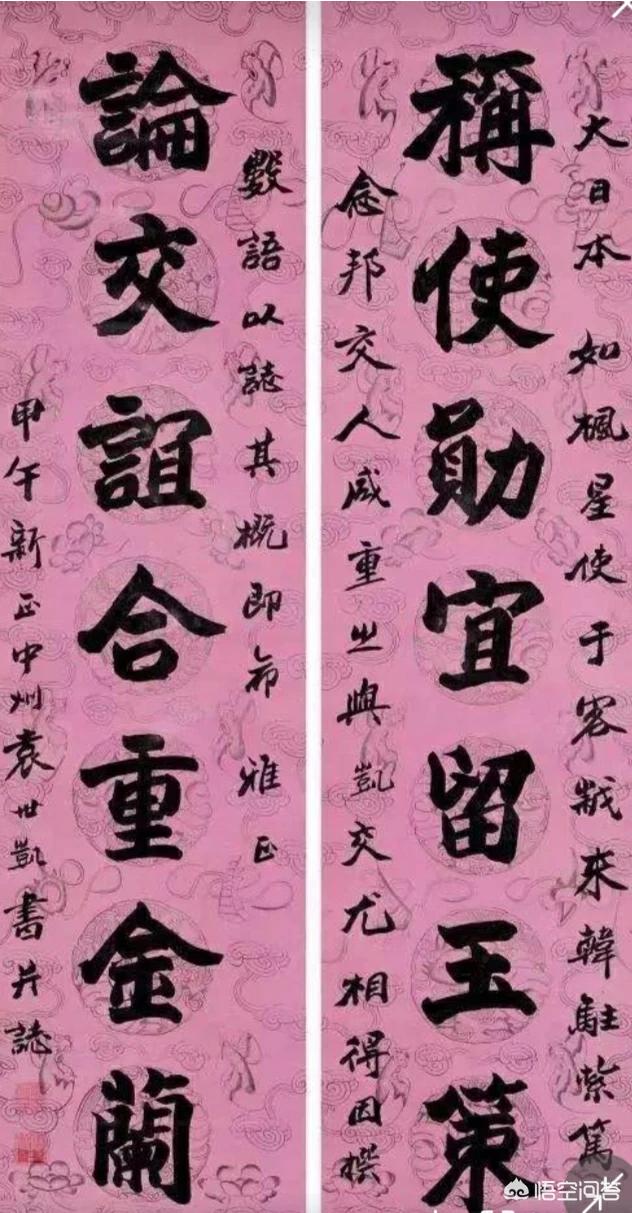 大日本 如楓星使于客歲來韓駐紮篤
稱使勛宜留玉策
念邦交人咸重之與凱交尤相得因撰
數語以誌其概即希 雅正
論交誼合重金蘭
甲午新正中州袁世凱書并誌
悟空问答